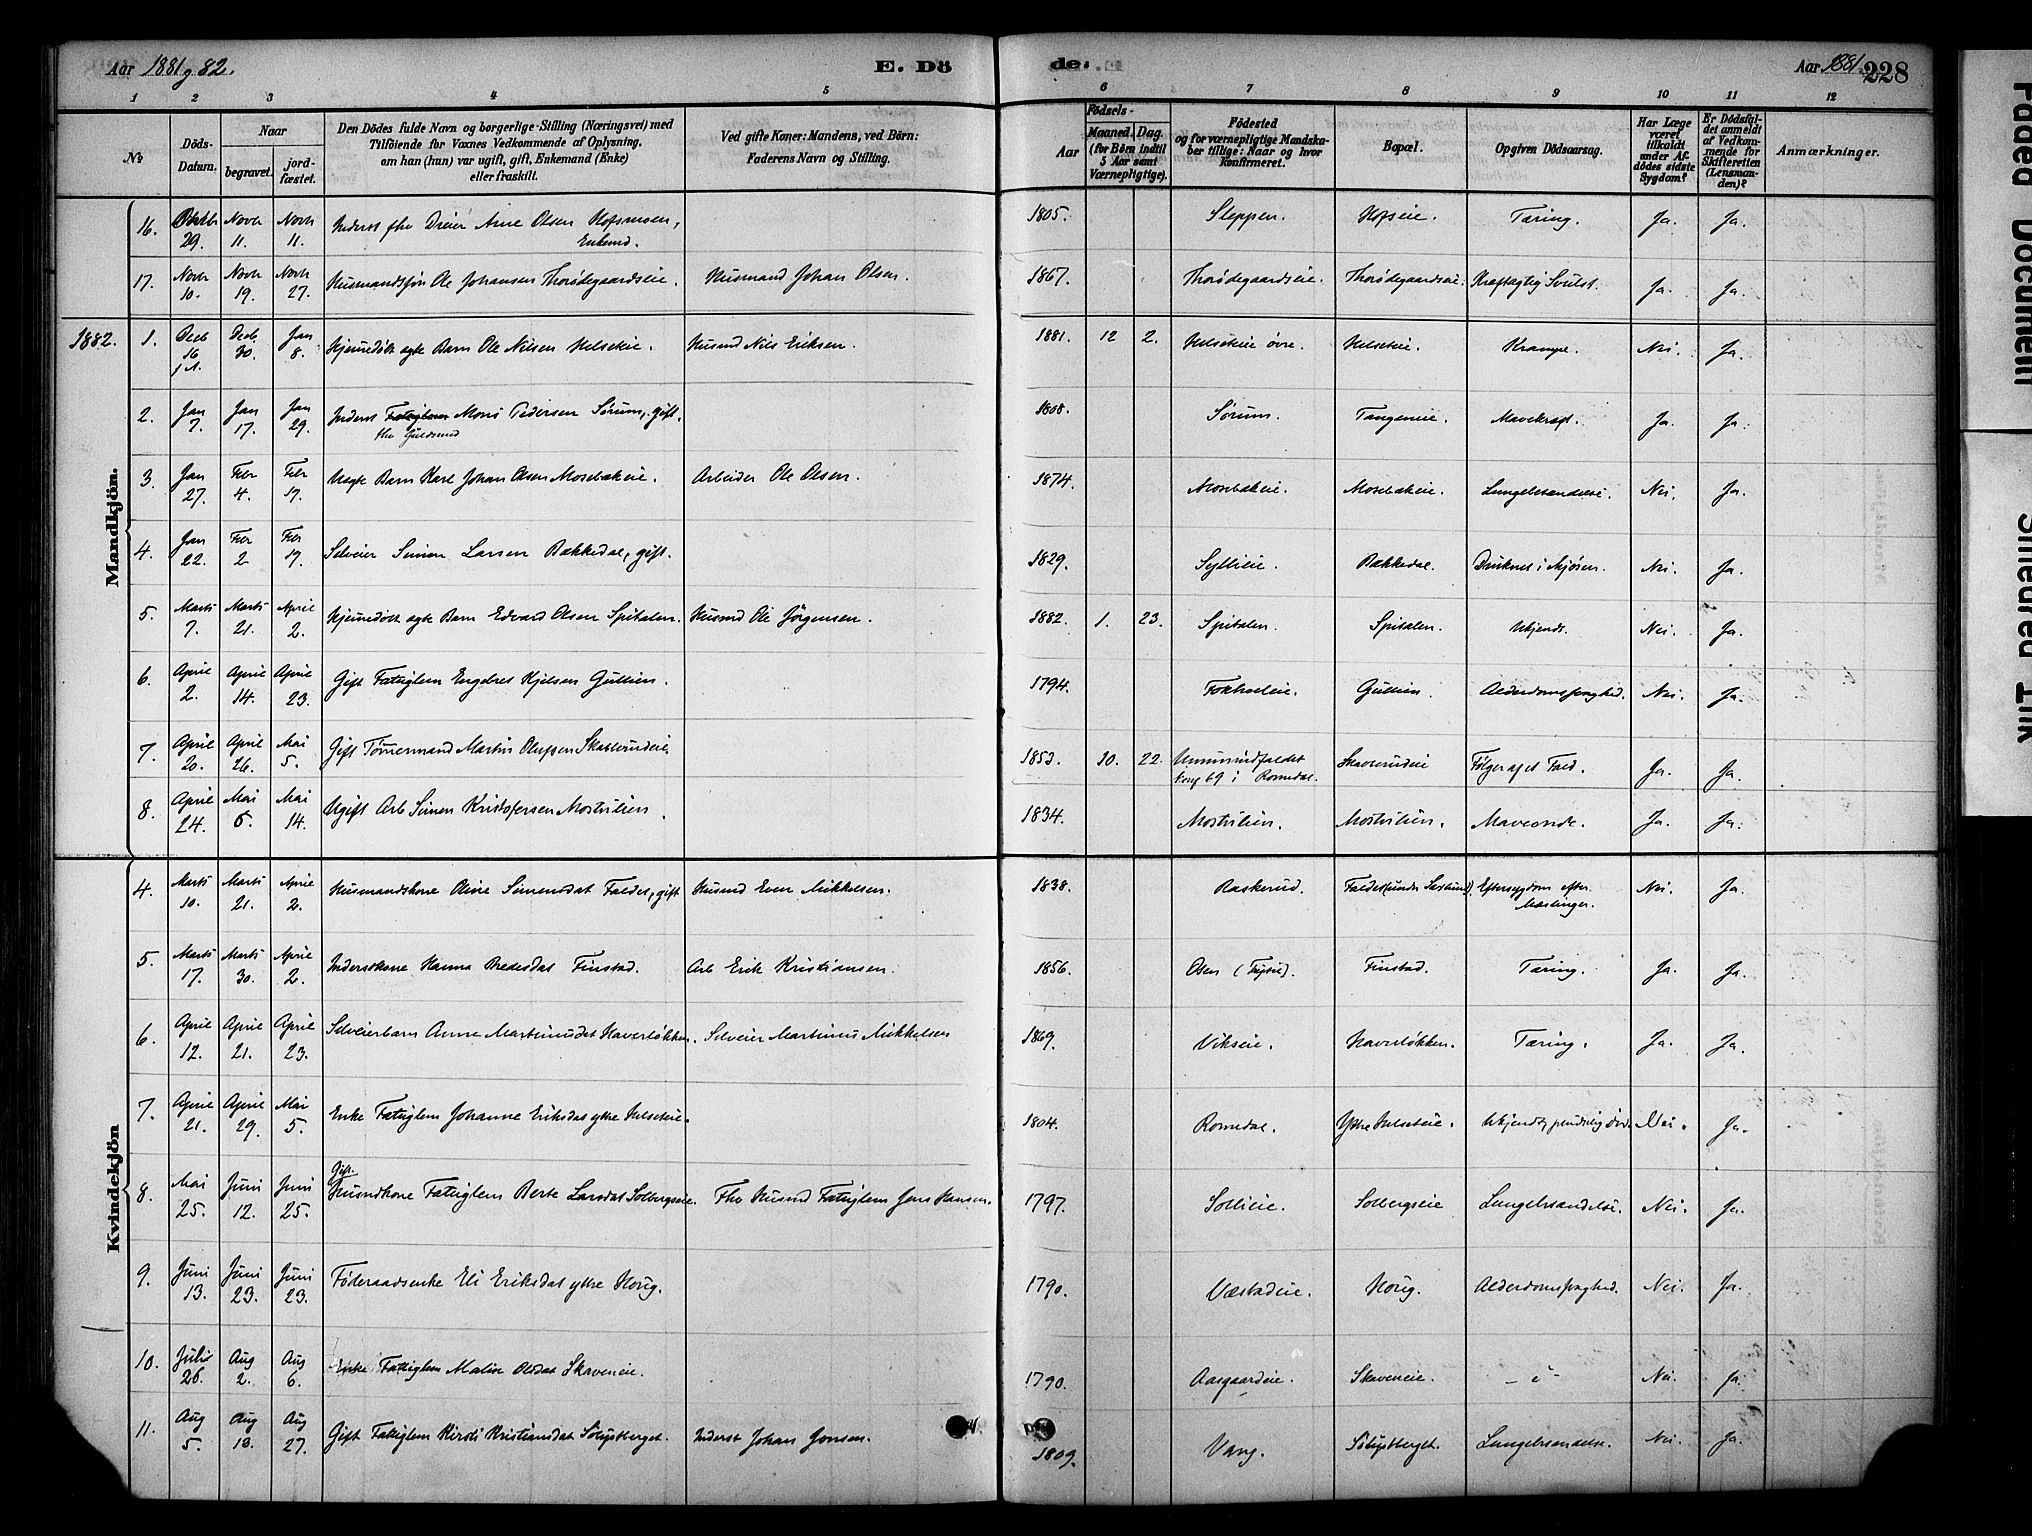 Aar 1881 g 82. E. Dö
de. Aar 1881. 228
1 2 3 4 5 6 7 8 9 10 11 12
№ Döds-Datum. Naar begravet. jordfæstet.
Den Dödes fulde Navn og borgerlige Stilling (Næringsvei) med
Tilföiende for Voxnes Vedkommende af Oplysning,
om han (hun) var ugift, gift, Enkemand (Enke)
eller fraskilt.
Ved gifte Koner: Mandens, ved Börn:
Faderens Navn og Stilling.
Födsels-
Aar Maaned. Dag.
(for Börn indtil
5 Aar samt
Værnepligtige).
Födested
og for værnepligtige Mandskaber tillige: Naar og hvor
konfirmeret.
Bopæl.
Opgiven Dödsaarsag.
Har Læge været tilkaldt under Afdödes sidste Sygdom?
Er Dödsfaldet anmeldt af Vedkommende for Skifteretten (Lensmanden)?
Anmærkninger.
Mandkjön.
16. Oktbr 29. Novb 11. Novb 11. Inderst fhv Dreier Arne Olsen Hofsmoen, Enkemd. 1805. Sleppen. Hofseie. Tæring. Ja. Ja.
17. Novb 10. Novb 19. Novb 27. Husmandssøn Ole Johansen Thorødegaardseie. Husmand Johan Olsen. 1867. Thorødegaardseie. Thorødegaardseie. Kræftagtig Svulst. Ja. Ja.
1882. 1. Decb 16 Decb 30. Jan 8. Hjemmedøbt ægte Barn Ole Nilsen Helsetеie. Husmd Nils Eriksen. 1881. 12 2. Helseteie øvre. Helseteie. Krampe. Nei. Ja.
2. Jan 7. Jan 17. Jan 29. Inderst Mons Pedersen Sørum, gift. 1808. Sørum. Tangeneie. Mavekræft. Ja. Ja.
3. Jan 27. Febr 4. Febr 17. Uægte Barn Karl Johan Olsen Mosebækeie. Arbeider Ole Olsen. 1874. Mosebækeie. Mosebækeie. Lungebetændelse. Nei. Ja.
4. Jan 22. Febr 2 Febr 17. Selveier Simen Larsen Bækkedal, gift. 1829. Syllieie. Bækkedal. Druknet i Mjøsen. Nei. Ja.
5. Marts 7. Marts 21. April 2. Hjemmedøbt ægte Barn Edvard Olsen Spitalen. Husmd Ole Jørgensen. 1882. 1. 23. Spitalen. Spitalen. Ukjendt. Nei. Ja.
6. April 2. April 14. April 23. Gift Fattiglem Engebret Kjelsen Gullien. 1794. Fokholeie. Gullien. Alderdomssvaghed. Nei. Ja.
7. April 20. April 26. Mai 5. Gift Tømmermand Martin Olufsen 1853. 10. 22. i Romedal. Følger af et Fald. Ja. Ja.
8. April 24. Mai 5. Mai 14. Ugift Arb Simen Kristofersen Mostulien. 1834. Mostulien. Mostulien. Maveonde. Ja. Ja.
Kvindekjön
4. Marts 10. Marts 21. April 2. Husmandskone Oline Simensdat Faldet, gift Husmd Even Mikkelsen. 1838. Raskerud. Faldet (under Saxlund). Eftersygdom efter Mæslinger. Nei. Ja.
5. Marts 17. Marts 30. April 2. Inderstkone Hanna Bredesdat Finstad. Arb Erik Kristiansen. 1856. Finstad. Tæring. Ja. Ja.
6. April 12. April 21. April 23. Selveierbarn Anne Martinusdat Haverløkken. Selveier Martinus Mikkelsen 1869. Vikseie. Haverløkken. Tæring. Ja. Ja.
7. April 21. April 29. Mai 5. Enke Fattiglem Johanne Eriksdat ytre Helseteie. 1804. Romedal. Ytre Helseteie. Ukjendt, pludselig død. Nei. Ja.
8. Mai 25. Juni 12. Juni 25. Gift. Husmdkone Fattiglem Berte Larsdat Solbergseie. Fhv Husmd Fattiglem Jens Hansen. 1797. Sollieie. Solbergseie Lungebetændelse. Nei. Ja.
9. Juni 13. Juni 23. Juni 23. Føderaadsenke Eli Eriksdat ytre Horig. 1790. Væstadeie. Horig. Alderdomssvaghed. Nei. Ja.
10. Juli 26. Aug 2. Aug 6. Enke Fattiglem Malin Olsdat Skaveneie. 1790. Aasgaardeie. Skaveneie. — " — Nei. Ja.
11. Aug 5. Aug 13. Aug 27. Gift Fattiglem Kirsti Kristiansdat Inderst Johan Jonsen. 1809. Vang. Lungebetændelse. Nei. Ja.
Faded Document
Smeared Ink